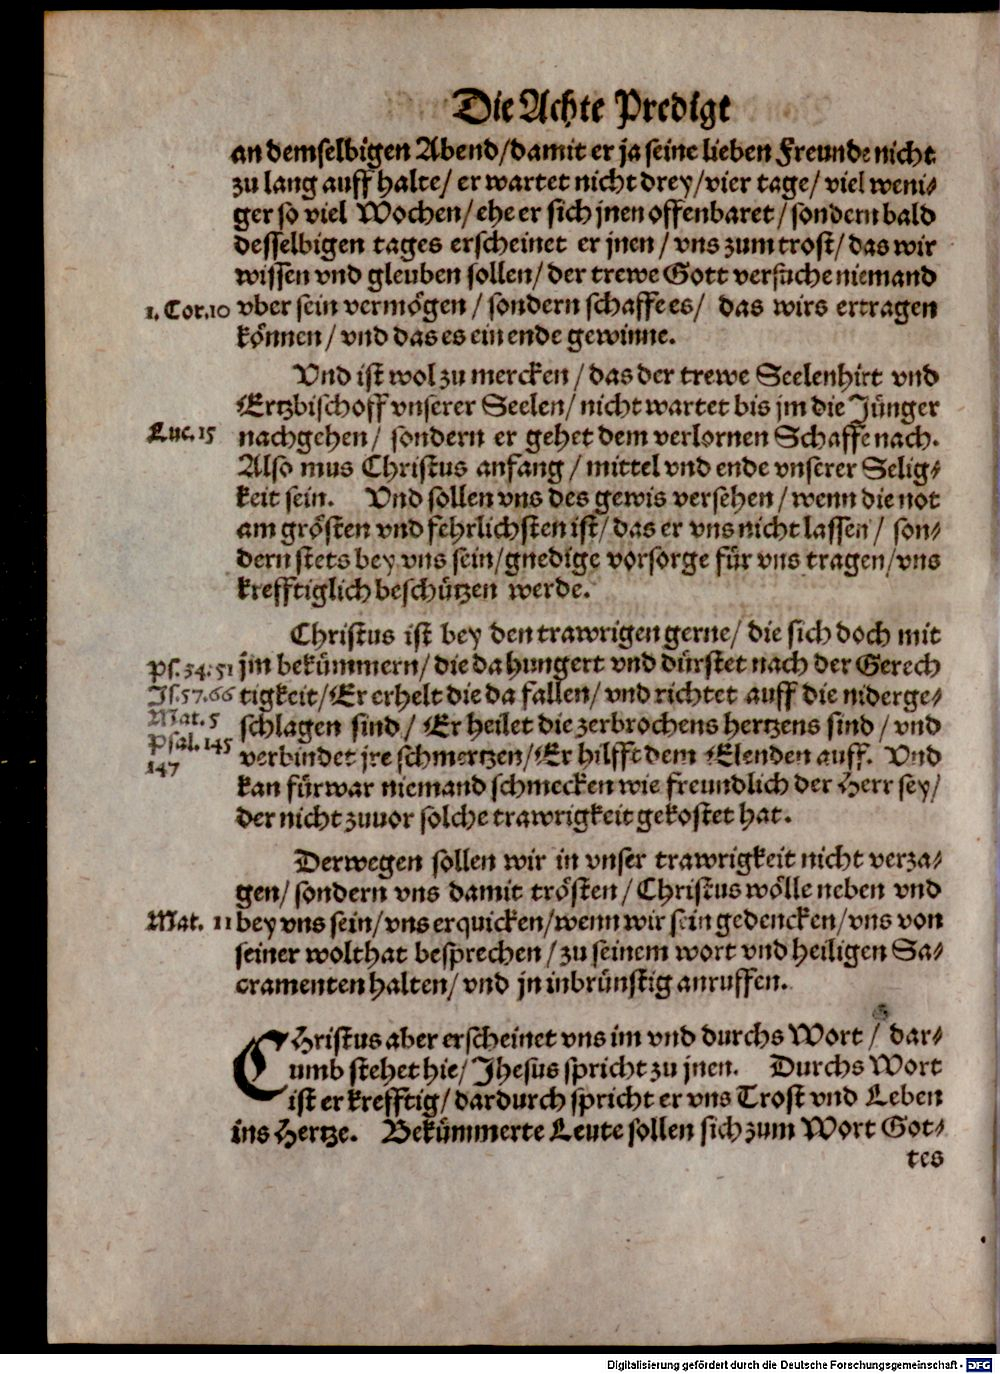 Die Achte Predigt
an demselbigen Abend/damit er ja seine lieben Freunde nicht
zu lang auff halte/ er wartet nicht drey/vier tage/ viel weni⸗
ger so viel Wochen/ ehe er sich jnen offenbaret/ sondern bald
desselbigen tages erscheinet er jnen / vns zum trost/ das wir
wissen vnd gleuben sollen/ der trewe Gott versuche niemand
1. Cor.10 vber sein vermögen / sondern schaffe es/ das wirs ertragen
können / vnd das es ein ende gewinne.
Vnd ist wol zu mercken / das der trewe Seelenhirt vnd
Ertzbischoff vnserer Seelen/ nicht wartet bis jm die Jünger
Luc.15 nachgehen/ sondern er gehet dem verlornen Schaffe nach.
Also mus Christus anfang / mittel vnd ende vnserer Selig⸗
keit sein. Vnd sollen vns des gewis versehen/ wenn die not
am grösten vnd fehrlichsten ist/ das er vns nicht lassen/ son⸗
dern stets bey vns sein/gnedige vorsorge für vns tragen/vns
krefftiglich beschützen werde.
Christus ist bey den trawrigen gerne/ die sich doch mit
Ps.34.51 jm bekümmern/ die da hungert vnd dürstet nach der Gerech
Js.57.66 tigkeit/Er erhelt die da fallen/ vnd richtet auff die niderge⸗
Mat. 5 schlagen sind/ Er heilet die zerbrochens hertzens sind / vnd
Psal.145 verbindet jre schmertzen/Er hilfft dem Elenden auff. Vnd
147 kan fürwar niemand schmecken wie freundlich der Herr sey/
der nicht zuuor solche trawrigkeit gekostet hat.
Derwegen sollen wir in vnser trawrigkeit nicht verza⸗
gen/ sondern vns damit trösten / Christus wölle neben vnd
Mat. 11 bey vns sein/vns erquicken/wenn wir sein gedencken/vns von
seiner wolthat besprechen / zu seinem wort vnd heiligen Sa⸗
cramenten halten/ vnd jn inbrünstig anruffen.
CHristus aber erscheinet vns im vnd durchs Wort / dar⸗
umb stehet hie/ Jhesus spricht zu jnen. Durchs Wort
ist er krefftig/ dardurch spricht er vns Trost vnd Leben
ins Hertze. Bekümmerte Leute sollen sich zum Wort Got⸗
tes
Digitalisierung gefördert durch die Deutsche Forschungsgemeinschaft - DFG